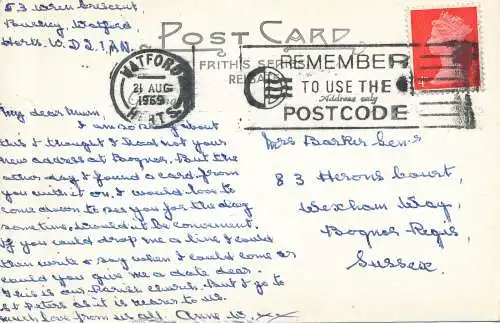 53 Wren Crescent
Bushey, Watford
Herts. WD2, 1AN.
POST CARD
FRITH'S SERIES
REIGATE
WATFORD
21 AUG
1969
HERTS.
REMEMBER
TO USE THE
Address only
POSTCODE
My dear Mum,
I am so sorry about
this I thought I had not your
new address at Bognor. But the
other day I found a card from
you with it on. I would love to
come down to see you for the day
sometime. Would it be convenient.
If you could drop me a line I could
then write & say when I could come or
could you give me a date dear.
This is our Parish Church. But I go to
St Peters as it is nearer to us.
Much love from us all. Anne W. xx
Mrs Barker Senr
83 Herons Court,
Wexham Way,
Bognor Regis,
Sussex.